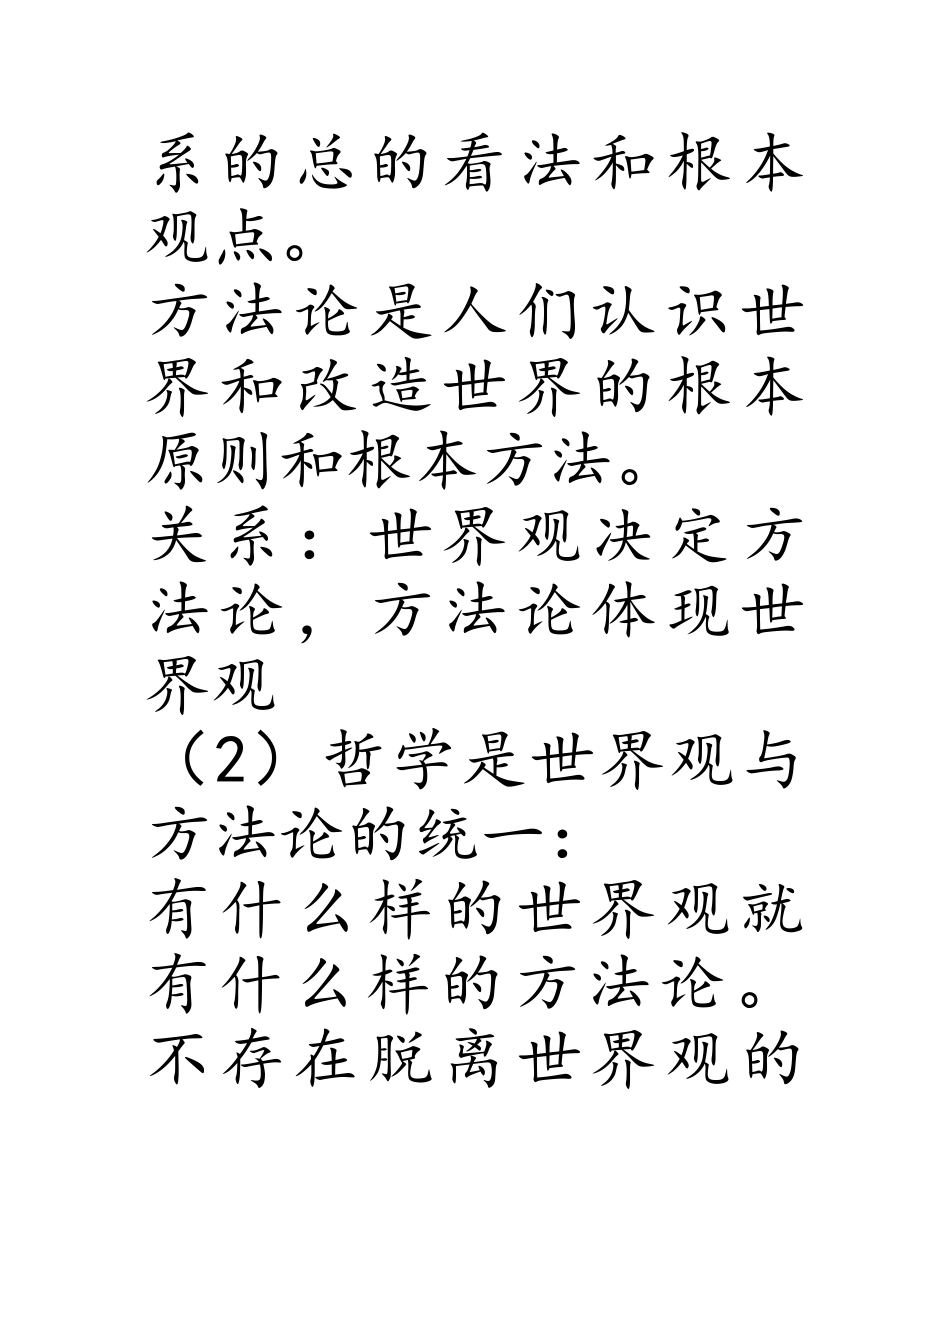 系的总的看法和根本
观点。
方法论是人们认识世
界和改造世界的根本
原则和根本方法。
关系：世界观决定方
法论，方法论体现世
界观
（2）哲学是世界观与
方法论的统一：
有什么样的世界观就
有什么样的方法论。
不存在脱离世界观的